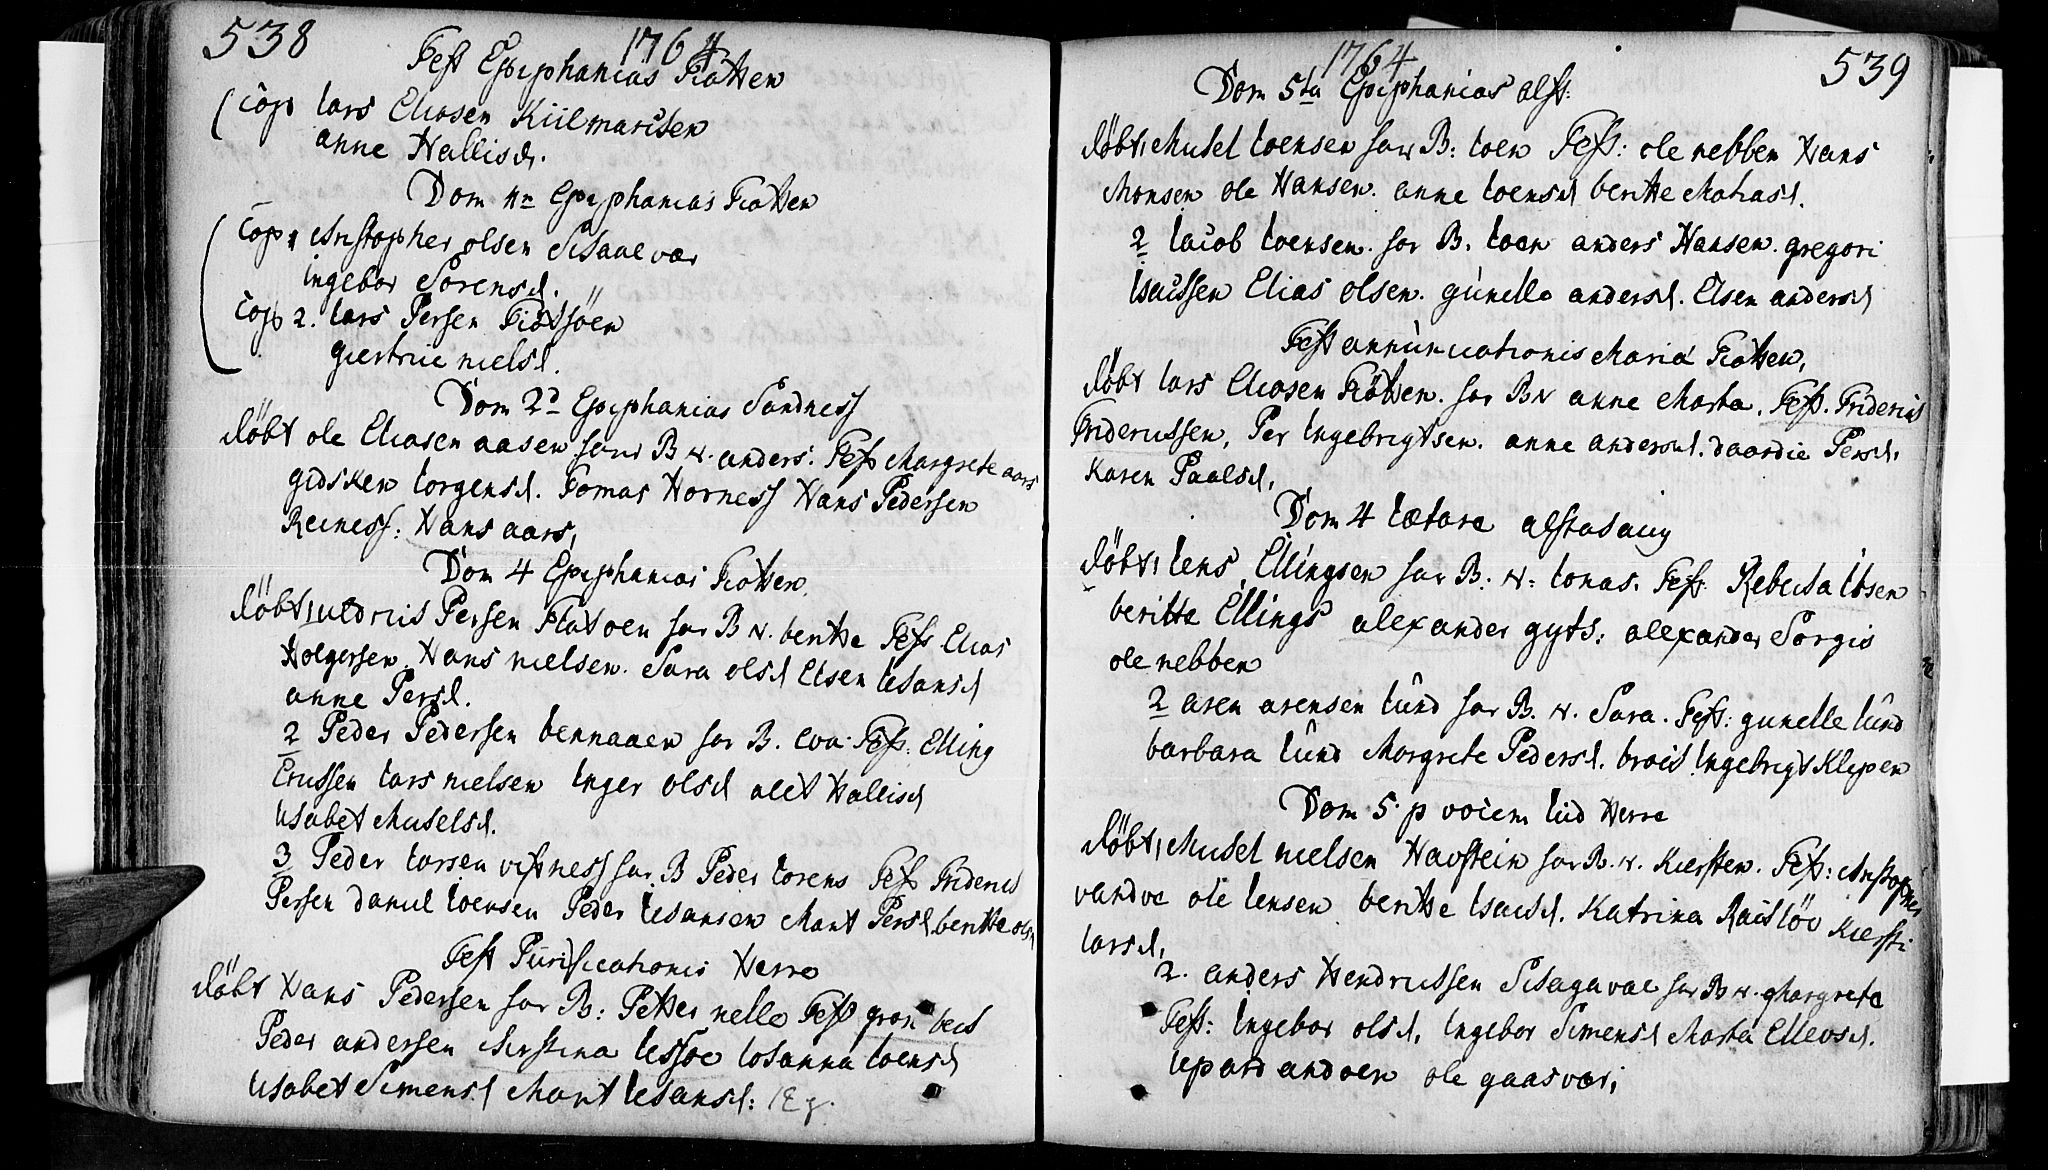 538
1764
Fest Epiphanias Tiøtten
Cop lars Eliasen Kiilmarcksen
anne Hallisd.
Dom 4n Epiphanias Tiøtten
Cop 1 christopher olsen Skaalvær
ingebor Sorensd.
Cop 2. lars Persen Tiøtsöen
giertrue nielsd.
Dom 2d Epiphanias Sandness
döbt ole Eliasen aasen har B N. anders. Tess Margrete aars
gidsken torgensd. Tomas Horness Hans Pedersen
Reiness: Hans aars,
Dom 4 Epiphanias Tiøtten
döbt, Persen har B N. beritte Tess Elias
Holgersen. Hans nielsen. Sara olsd Elsen
anne Persd.
2 Peder Pedersen bennaaen har B. eva. Tess. Elling
Ericssen lars nielsen Inger olsd alet Hallisd
lisabet Mickelsd.
3 Peder larsen vistness har B Peder Tess Friderich
Persen Daniel Ioensen Peder Marit Persd. beritte olsd
Fest Purificationis Herrø
döbt Hans Pedersen har B: Petter nelle Tess gron bech
Peder andersen christina Iessoe Iohanna Ioensd
lisabet Simensd Marit

1764
539
Dom 5ta Epiphanias alst:
döbt, Mickel Ioensen har B: Ioen Tess: ole nebben Hans
Monsen ole Hansen. anne Ioensd beritte Matiasd.
2 Iacob Ioensen. har B. Ioen anders Hansen. gregori
Isacssen Elias olsen. gunelle andersd. Elsen andersd
Fest annunciationis Maria Tiøtten,
döbt lars Eliasen Tiötten. har BN anne Marta. Tess. Friderich
Fridericssen, Per Ingebrigtsen. anne andersd. daardie Persd,
Karen Paalsd,
Dom 4 lætare alstahaug
döbt, Iens Ellingsen har B. N: Ionas. Tess. Rebecka Ibsen
beritte Ellings alexander gyts: alexander Sorgis
ole nebben
2 aren arensen lund har B. N. Sara. Tess: gunelle lund
barbara lund Margrete Pedersd. Ingebrigt Klepen
Dom 5. p Herrø
döbt, Mickel nielsen Havstein har B. N. Kiersten. Tess: christopher
vandve ole Iensen beritte Isacsd. Katrina Kiersti
larsd,
2. anders Hendricssen Skagavae har B N. Margrete
Tess: Ingebor olsd, Ingebor Simensd Marta Ellevsd.
ole gaasvær,